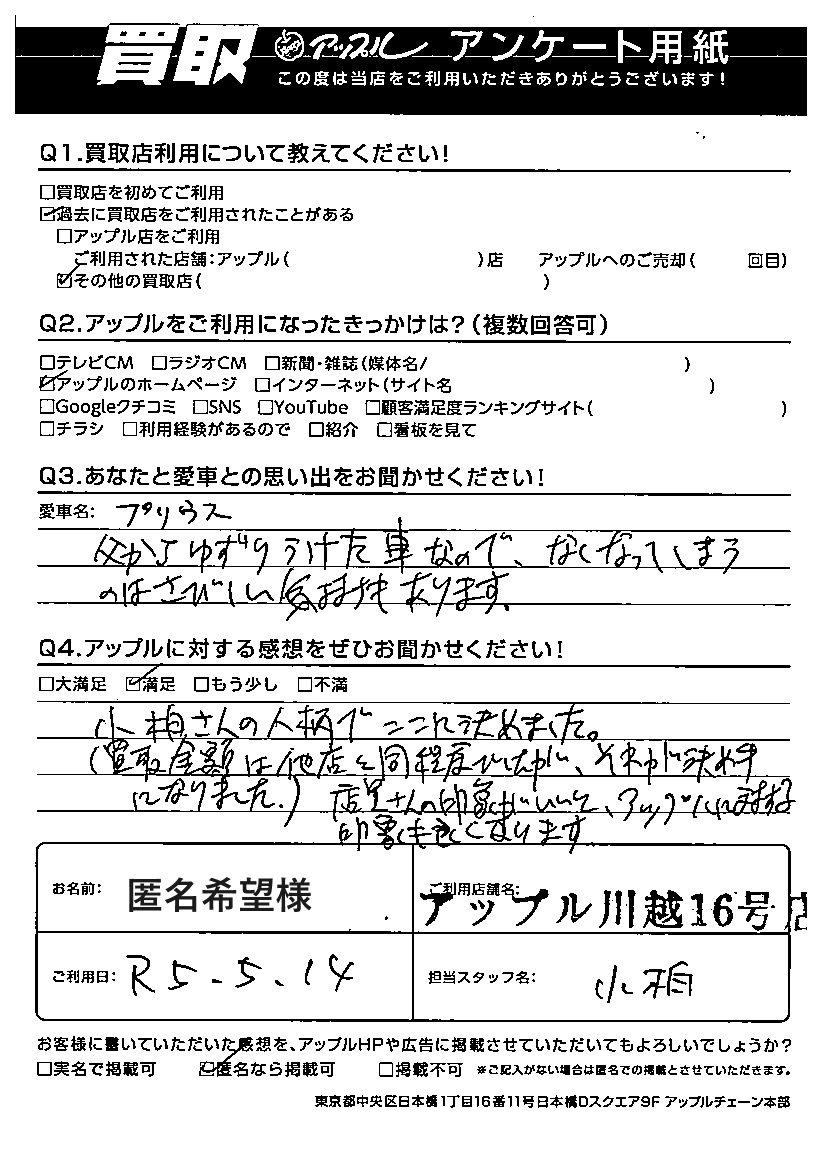 買取 アップル アンケート用紙
この度は当店をご利用いただきありがとうございます!
Q1.買取店利用について教えてください!
□買取店を初めてご利用
☑過去に買取店をご利用されたことがある
□アップル店をご利用
ご利用された店舗:アップル( )店 アップルへのご売却( 回目)
☑その他の買取店( )
Q2.アップルをご利用になったきっかけは?(複数回答可)
□テレビCM □ラジオCM □新聞・雑誌(媒体名/ )
☑アップルのホームページ □インターネット(サイト名 )
□Googleクチコミ □SNS □YouTube □顧客満足度ランキングサイト( )
□チラシ □利用経験があるので □紹介 □看板を見て
Q3.あなたと愛車との思い出をお聞かせください!
愛車名: プリウス
父からゆずりうけた車なので、なくなってしまう
のはさびしい気持ちもあります。
Q4.アップルに対する感想をぜひお聞かせください!
□大満足 ☑満足 □もう少し □不満
小柏さんの人柄でここに決めました。
(買取金額は他店と同程度でしたが、それが決め手
になりました。) 店員さんの印象がいいと、アップルに対する
印象も良くなります
お名前: 匿名希望様 ご利用店舗名: アップル川越16号店
ご利用日: R5.5.14 担当スタッフ名: 小柏
お客様に書いていただいた感想を、アップルHPや広告に掲載させていただいてもよろしいでしょうか?
□実名で掲載可 ☑匿名なら掲載可 □掲載不可 ※ご記入がない場合は匿名での掲載とさせていただきます。
東京都中央区日本橋1丁目16番11号日本橋Dスクエア9F アップルチェーン本部